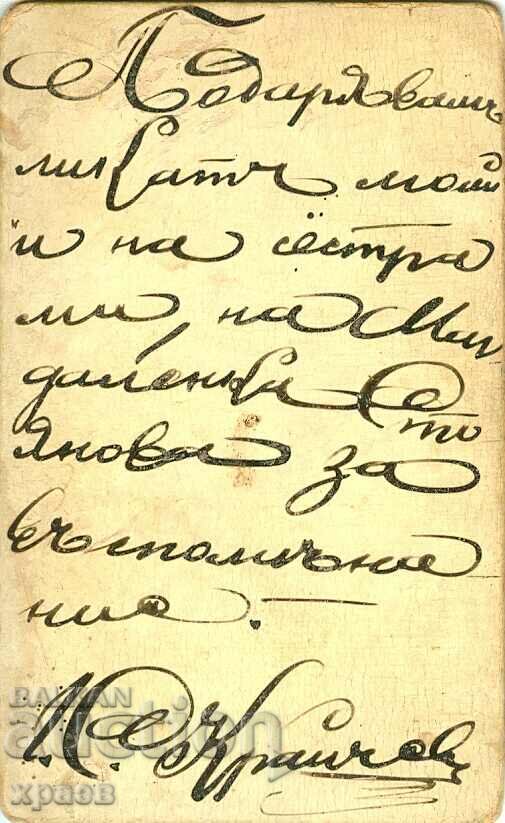 Подарявамъ
ликатъ мой
и на сестра
ми, на Маг
даленка Сто
янова за
въспомѣна
ние.—
Н. С. Краичев
BALKAN
auction
храов